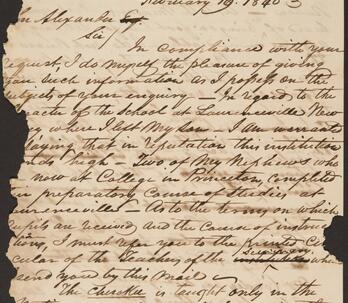 February 19. 1840
In Alexander Esq.
Sir
In compliance with your
request, I do myself the pleasure of giving
such information as I possess on the
subjects of your enquiry — In regard to the
racter of the School at Lawrenceville New
where I left My Son — I am warrante
saying that in reputation this institution
ands high — Two of My Nephews who
now at College in Princeton, completed
preparatory Course of Studies at
urenceville — As to the terms on which
upils are received and the Course of instruc
tions, I must refer you to the printed Cir
cular of the Teachers of the Seminary
send you by this Mail
The Cherokee is taught only in the